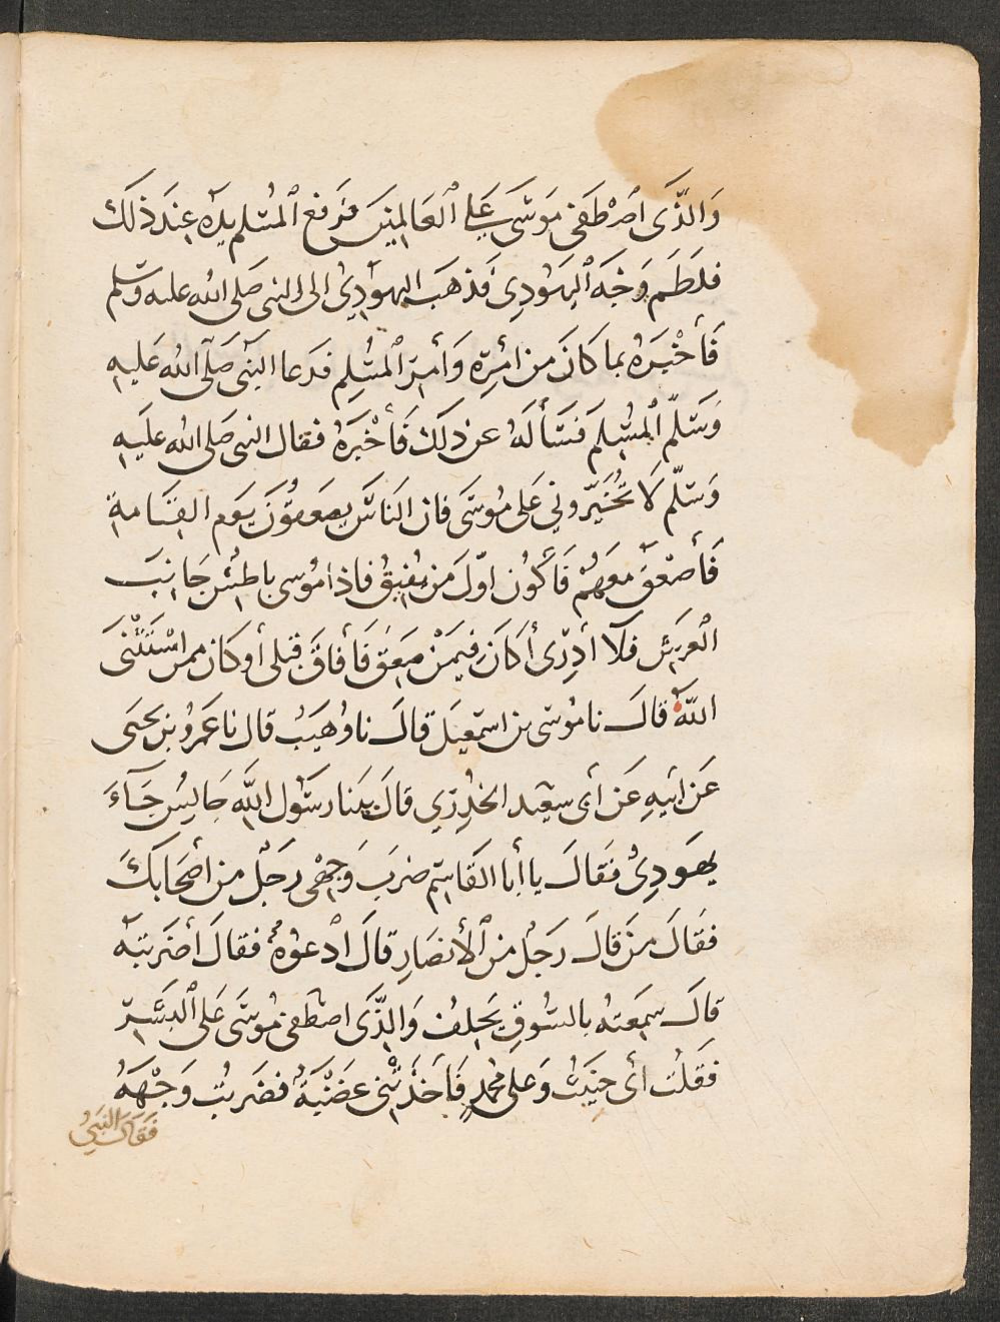 وَالذَّى ٱصْطَفى مَوسَى عَلى ٱلعَالمِينَ فرَفع ٱلمسُلم يدَه عِندَ ذلك
فلَطَم وَجْهَ ٱليهَوُدِى فَذهَبَ اليهوَدِىُ الى النبى صَلى الله عليه وسَلم
فَأخْبَرهُ بما كانَ من أمْرِه وَأمرِ ٱلمسُلِم فدَعا النبَى صَلّى الله عَليهِ
وَسَلّم ٱلمسُلمَ فسَألَهُ عن ذلكَ فَأخْبَرَهُ فقال النبى صَلى الله عليَهِ
وَسَلّم لَا تُخَيّروني عَلى موُسَى فان الناسَ يصَعَقوُنَ يوَم القيَامةِ
فَأصْعَقَ معَهمُ فَأكوُن اوّلَ مَن يفُيقُ فاذا موُسى باطِشُ جَانِبَ
الْعرَشِ فلَآ أدِرى أكانَ فيِمَنْ صَعِقَ فَأفاقَ قبلى أو كان ممن اسْتَثْنَى
اللهُ قالَ نا موُسَى بن اسمعِيلَ قالَ نا وُهَيبُ قال نا عَمروُ بن يحَيَى
عَن أبيهِ عَن أبى سعَيد الخدُرِي قالَ بيَنا رسَوُل الله جَالِسُ جَآءَ
يهوَدِىُ فقَالَ يا أبا القَاسِم ضرَبَ وَجهْى رَجَلُ من أصْحَابكَ
فقَالَ مَن قالَ رَجَلُ من ٱلأنصَارِ قالَ ادْعوُهُ فقالَ أضَرَبتهَ
قالَ سمِعَتهُ بالسّوُقِ يَحلِف وَالذَّى اصْطَفى موُسَى عَلى ٱلبشَرِ
فقَلتُ أى خبَيثُ وَعلى محُمدٍ فَأخَذَتْنى غضَبْةَُ فضَربتُ وَجْهَهُ
فَقالَ النبَيُ